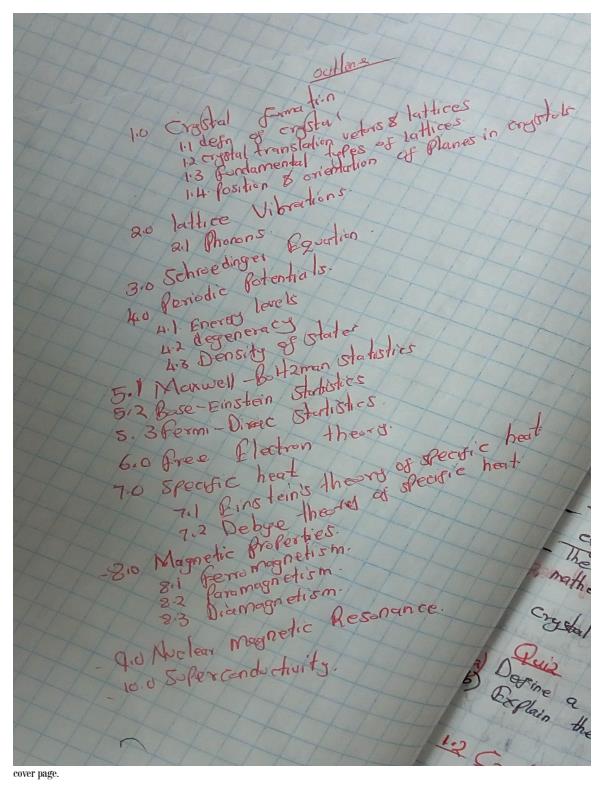 outline
1.0 Crystal formation
1.1 defn of crystal
1.2 crystal translation vetors & lattices
1.3 fundamental types of lattices
1.4. Position & orientation of Planes in crystals
2.0 lattice Vibrations.
2.1 Phonons.
3.0 Schroedinger Equation.
4.0 Periodic Potentials.
4.1 Energy levels
4.2 degeneracy
4.3 Density of states
5.1 Maxwell-Boltzman statistics
5.2 Bose-Einstein Statistics
5.3 Fermi-Dirac Statistics.
6.0 free Electron theory.
7.0 Specific heat
7.1 Einstein's theory of specific heat
7.2 Debye theory of specific heat.
8.0 Magnetic Properties.
8.1 Ferromagnetism.
8.2 Paramagnetism.
8.3 Diamagnetism.
9.0 Nuclear Magnetic Resonance.
10.0 Superconductivity.
The
mathe
crystal
Quiz
a) Define a
b) Explain the
1.2 C
cover page.